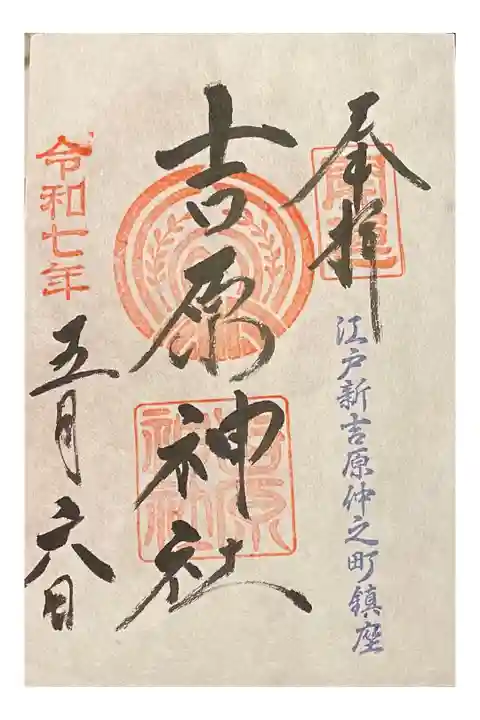 奉拝
開運
江戸新吉原仲之町鎮座
吉原神社
吉原神社
令和七年
五月六日